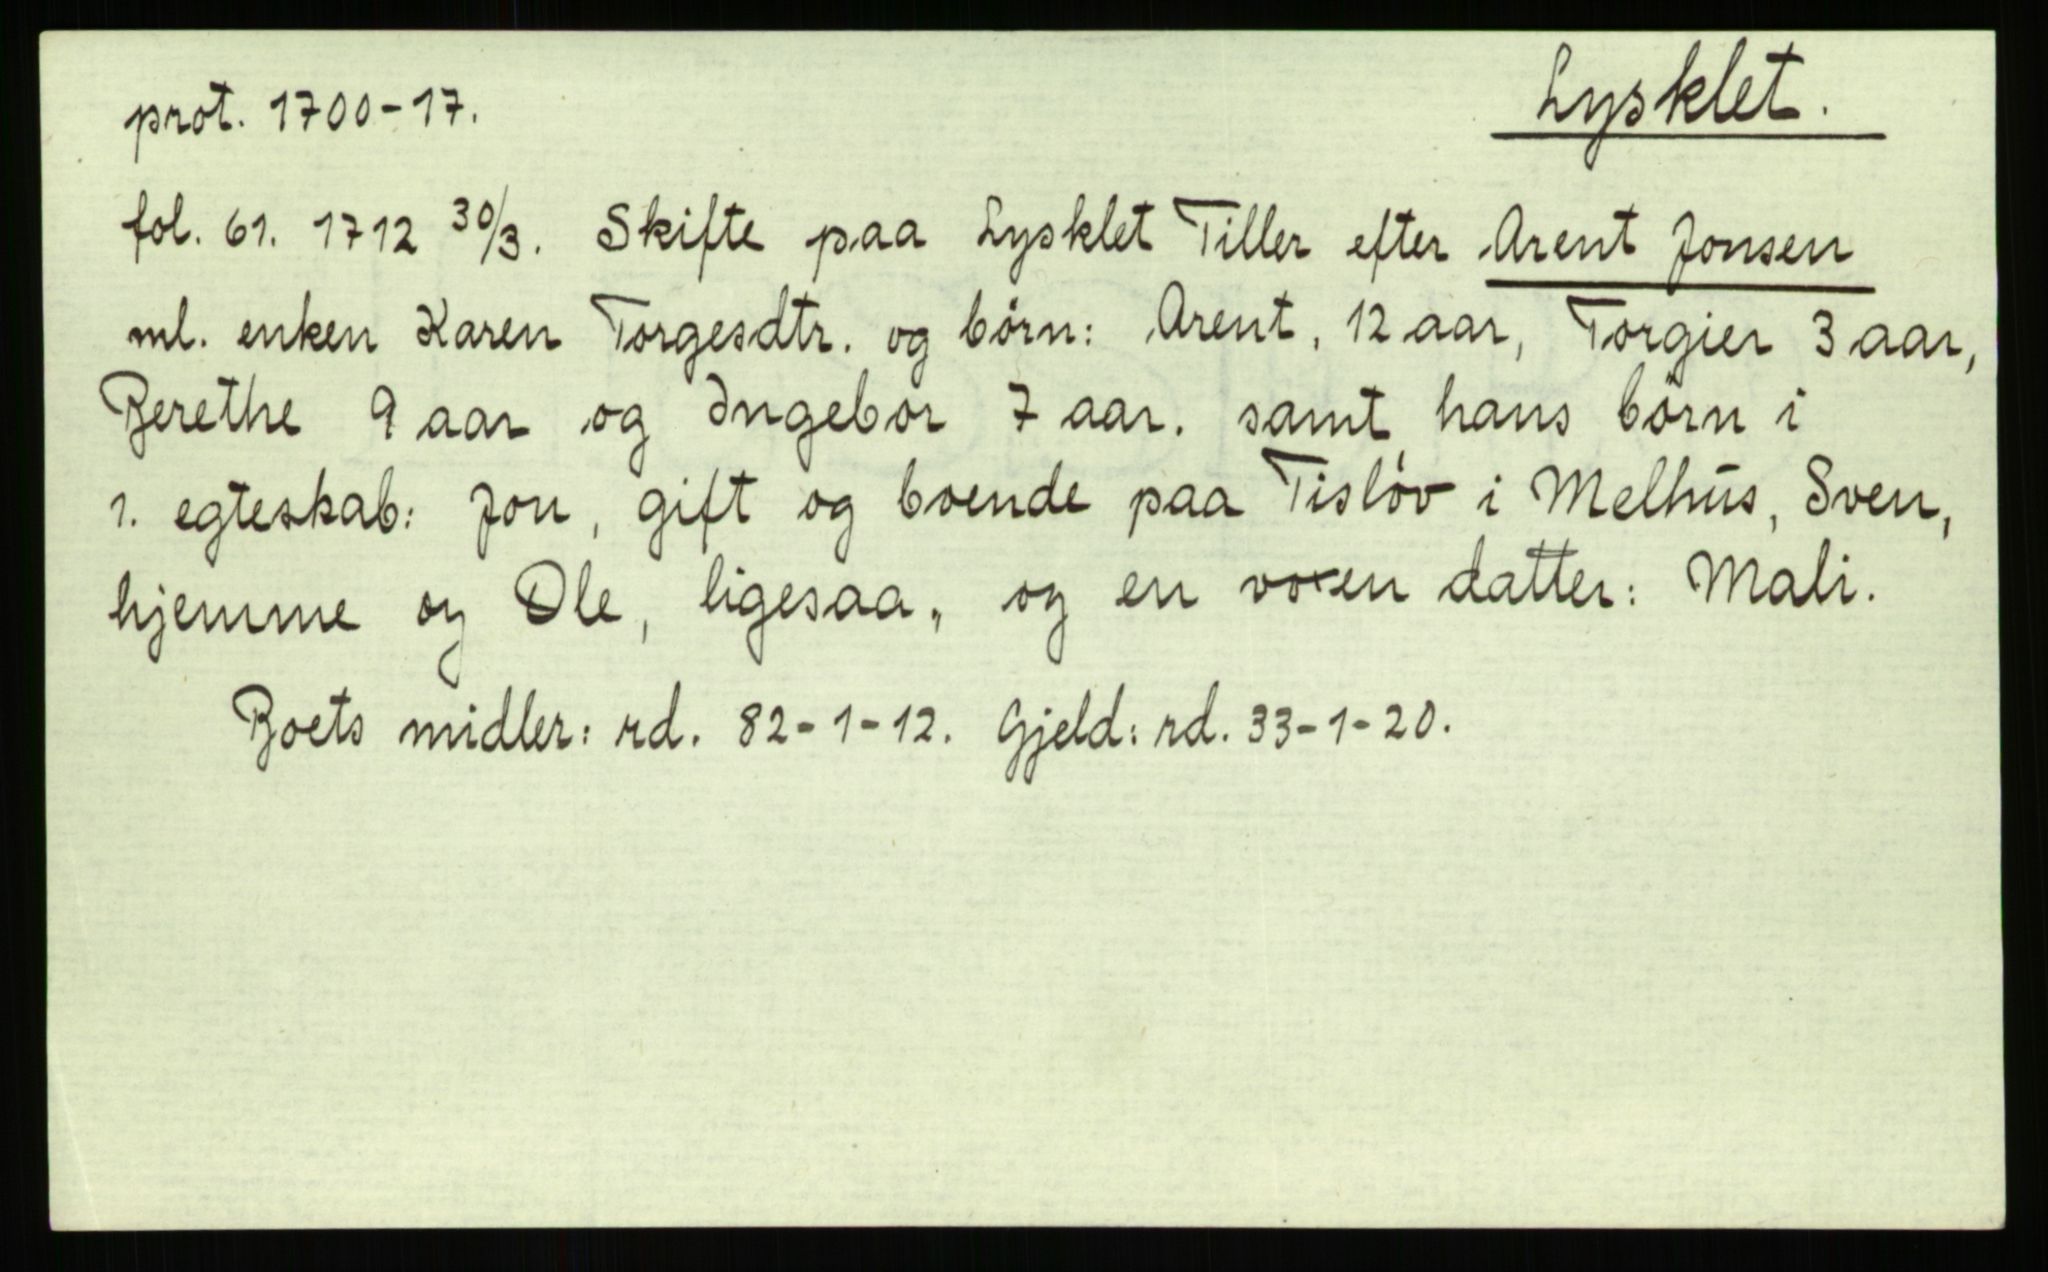 Lysklet.
prot. 1700-17.
fol. 61. 1712 30/3. Skifte paa Lysklet Tiller efter Arent Jonsen
ml. enken Karen Torgesdtr. og børn: Arent, 12 aar, Torgier 3 aar,
Berethe 9 aar og Ingebor 7 aar. samt hans børn i
1. egteskab: Jon, gift og boende paa Tisløv i Melhus, Sven,
hjemme og Ole, ligesaa,, og en voxen datter: Mali.
Boets midler: rd. 82-1-12. Gjeld: rd. 33-1-20.